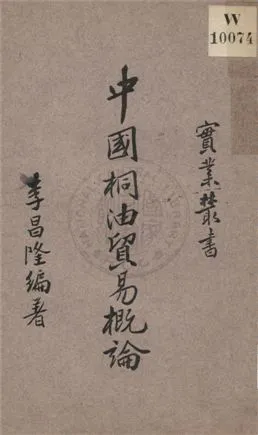 W
10074
實業叢書
中國桐油貿易概論
李昌隆編著